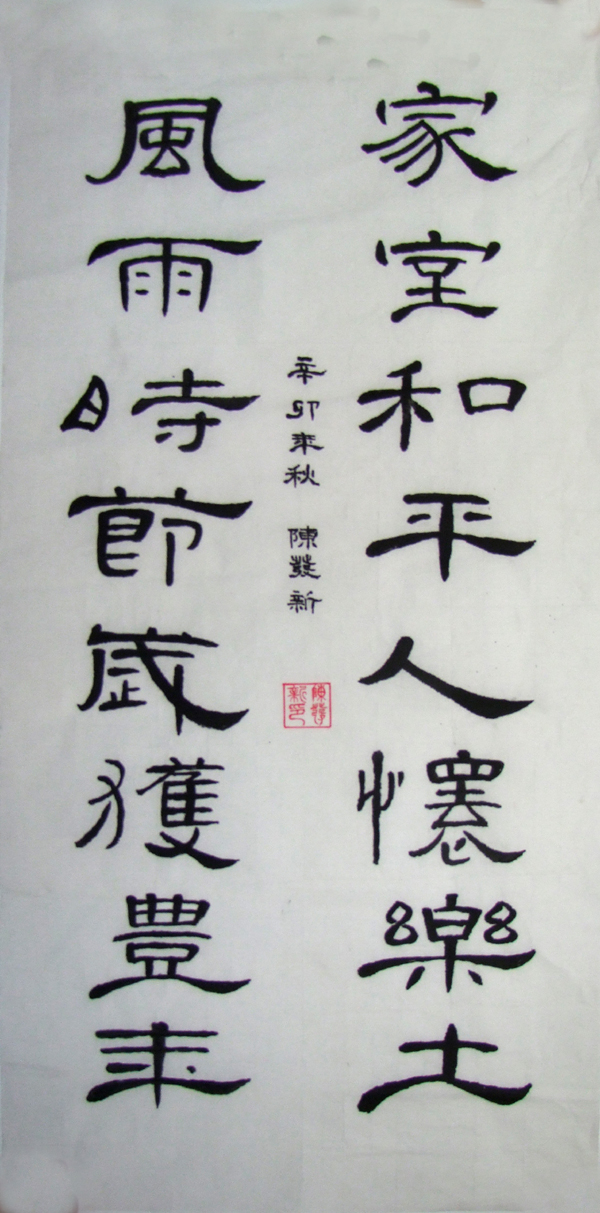 家室和平人懷樂土
風雨時節歲獲豊年
辛卯年秋 陳發新
陳發新印